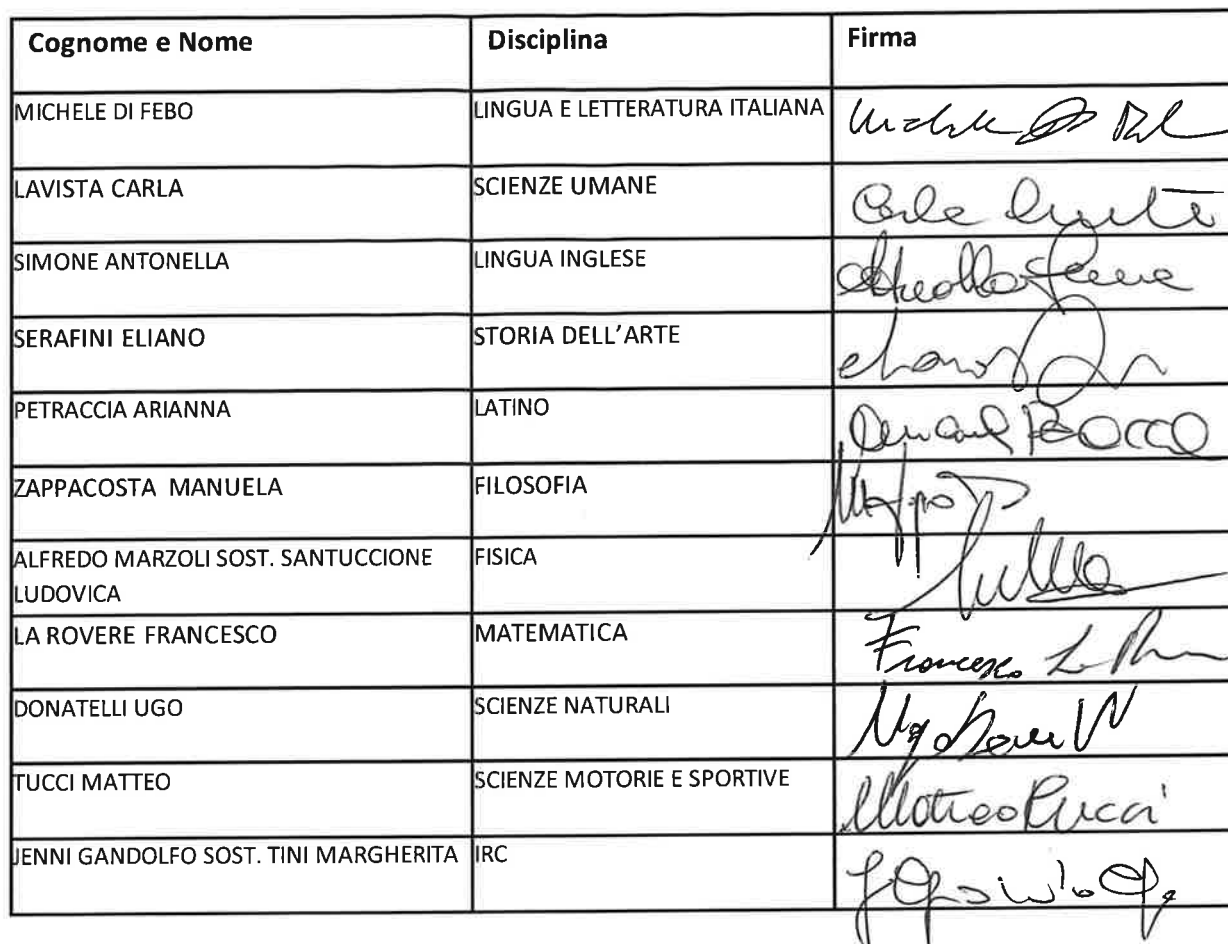 Cognome e Nome Disciplina Firma
MICHELE DI FEBO LINGUA E LETTERATURA ITALIANA
LAVISTA CARLA SCIENZE UMANE
SIMONE ANTONELLA LINGUA INGLESE
SERAFINI ELIANO STORIA DELL'ARTE
PETRACCIA ARIANNA LATINO
ZAPPACOSTA MANUELA FILOSOFIA
ALFREDO MARZOLI SOST. SANTUCCIONE FISICA
LUDOVICA
LA ROVERE FRANCESCO MATEMATICA Francesco
DONATELLI UGO SCIENZE NATURALI
TUCCI MATTEO SCIENZE MOTORIE E SPORTIVE Matteo Tucci
JENNI GANDOLFO SOST. TINI MARGHERITA IRC